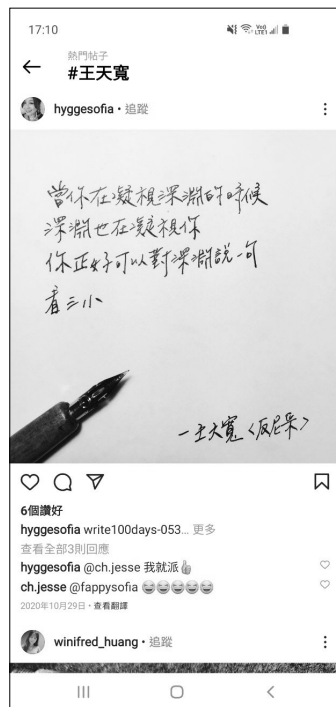 17:10
VoO
LTE1
熱門帖子
#王天寬
hyggesofia • 追蹤
當你在凝視深淵的時候
深淵也在凝視你
你正好可以對深淵說一句
看三小
—王天寬〈反尼采〉
6個讚好
hyggesofia write100days-053... 更多
查看全部3則回應
hyggesofia @ch.jesse 我就派👍
ch.jesse @fappysofia 😂😂😂😂😂
2020年10月29日 • 查看翻譯
winifred_huang • 追蹤